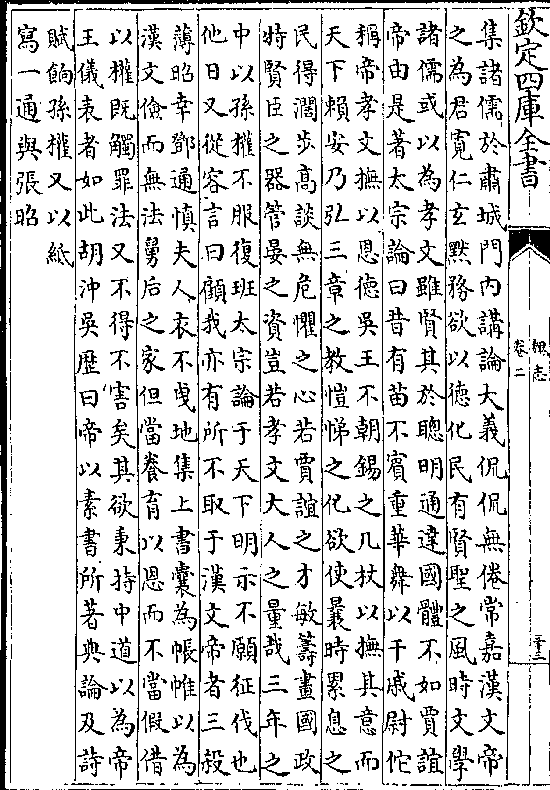 欽定四庫全書
魏志
卷二
三十三
集諸儒於肅城門内講論大義侃侃無倦常嘉漢文帝
之為君寛仁玄黙務欲以德化民有賢聖之風時文學
諸儒或以為孝文雖賢其於聰明通達國體不如賈誼
帝由是著太宗論曰昔有苗不賓重華舞以干戚尉佗
稱帝孝文撫以恩德吳王不朝錫之几杖以撫其意而
天下賴安乃弘三章之教愷悌之化欲使曩時累息之
民得濶步高談無危懼之心若賈誼之才敏籌畫國政
特賢臣之器管晏之資豈若孝文大人之量哉三年之
中以孫權不服復班太宗論于天下明示不願征伐也
他日又從容言曰顧我亦有所不取于漢文帝者三殺
薄昭幸鄧通慎夫人衣不曳地集上書囊為帳帷以為
漢文儉而無法舅后之家但當養育以恩而不當假借
以權既觸罪法又不得不害矣其欲秉持中道以為帝
王儀表者如此胡沖吳歴曰帝以素書所著典論及詩
賦餉孫權又以紙
寫一通與張昭